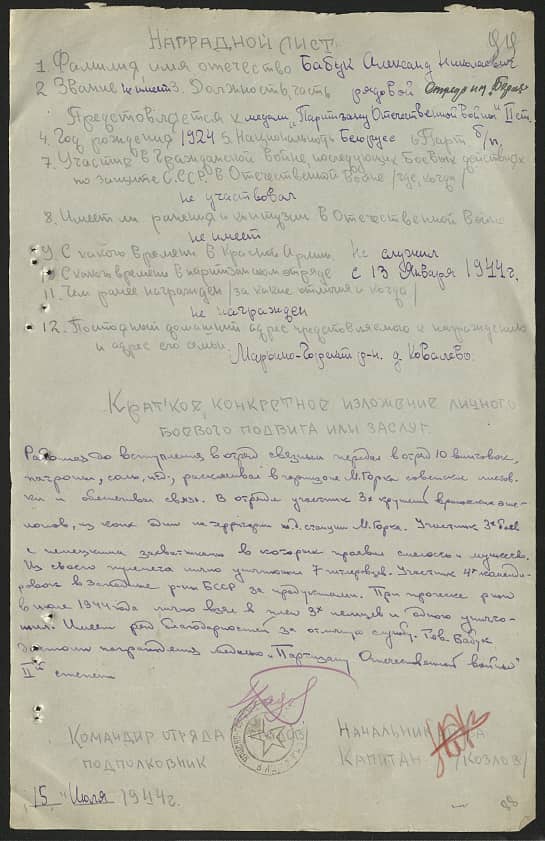 НАГРАДНОЙ ЛИСТ
1. Фамилия имя отчество Бабук Александ Николаевич
2 Звание не имеет 3. Должность, часть рядовой Отряд им.
Предствавляется к медали „Партизану Отечественной войны" II ст.
4. Год рождения 1924 5. Национальность Белорус 6 Парт б/п.
7. Участие в Гражданской войне, последующих боевых действиях
по защите С.С.С.Р. в Отечественной войне /где, когда/
не участвовал
8. Имеет ли ранения и контузии в Отечественной Войне
не имеет
9. С какого времени в Красной Армии. Не служил
10. С какого времени в партизанском отряде с 13 января 1944 г.
11. Чем ранее награжден /за какие отличия и когда/
не награжден
12. Постоянный домашний адрес представляемого к награждению
и адрес его семьи. р-н. д. Ковалево.
Краткое, конкретное изложение личного
боевого подвига или заслуг.
Работая до вступления в отряд связным передал в отряд 10 винтовок,
патроны, соль, и др., расклеивал в гарнизоне М. Горка советские листов-
ки и обеспечивал связь. В отряде участник 3х крушений вражеских эше-
лонов, из коих один на территории ж.д. станции М. Горка. Участник 3х боев
с немецкими захватчиками в которых проявил смелость и мужество.
Из своего пулемета лично уничтожил 7 гитлеровцев. Участник 4х команди-
ровок в Западные р-ны БССР за продуктами. При прочесе р-на
в июле 1944 года лично взял в плен 3х немцев и одного уничто-
жил. Имеет ряд благодарностей за отличную службу. Тов. Бабук
достоин награждения медалью „Партизану Отечественной войны"
IIй степени
Командир отряда
подполковник
Начальник
Капитан /Козлов/
„15" Июля 1944 г.